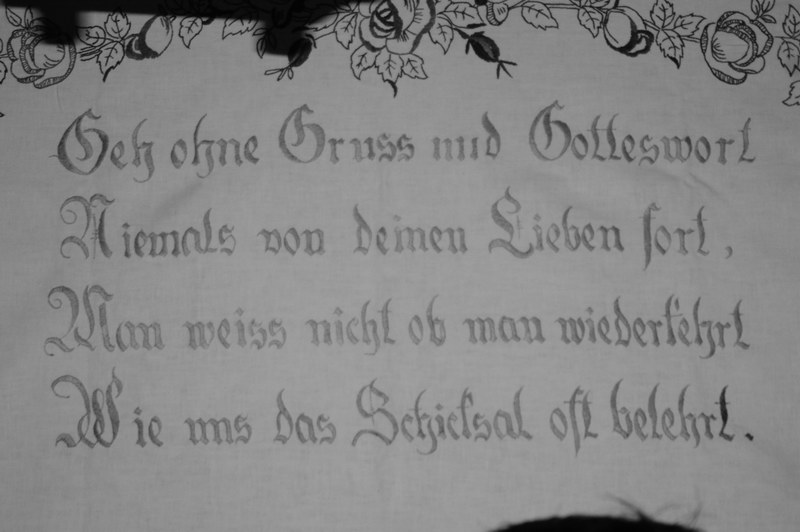 Geh ohne Gruss und Gotteswort
Niemals von deinen Lieben fort,
Man weiss nicht ob man wiederkehrt
Wie uns das Schicksal oft belehrt.